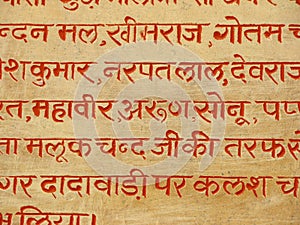 न्दन मल, खीमराज, गोतम च
शकुमार, नरपतलाल, देवराज
रत, महावीर, अरूण, सोनू, पप
ता मलूक चन्द जी की तरफ स
गर दादावाड़ी पर कलश च
लिया।